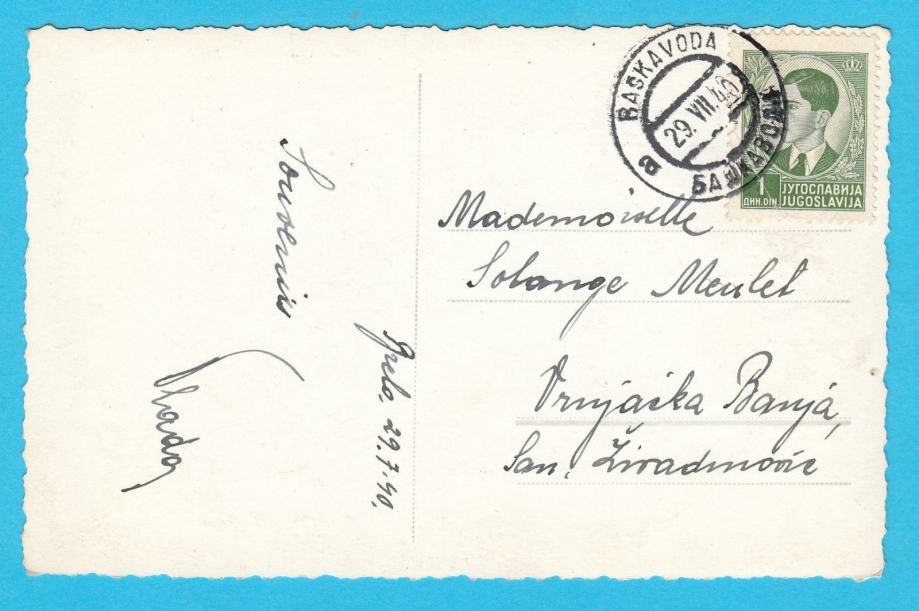 Souvenir
Brela, 29.7.40.
BASKAVODA
29.VII.40
a
1
ДИН. DIN
ЈУГОСЛАВИЈА
JUGOSLAVIJA
Mademoiselle
Solange Meulet
Vrnjačka Banja,
San. Živadinović